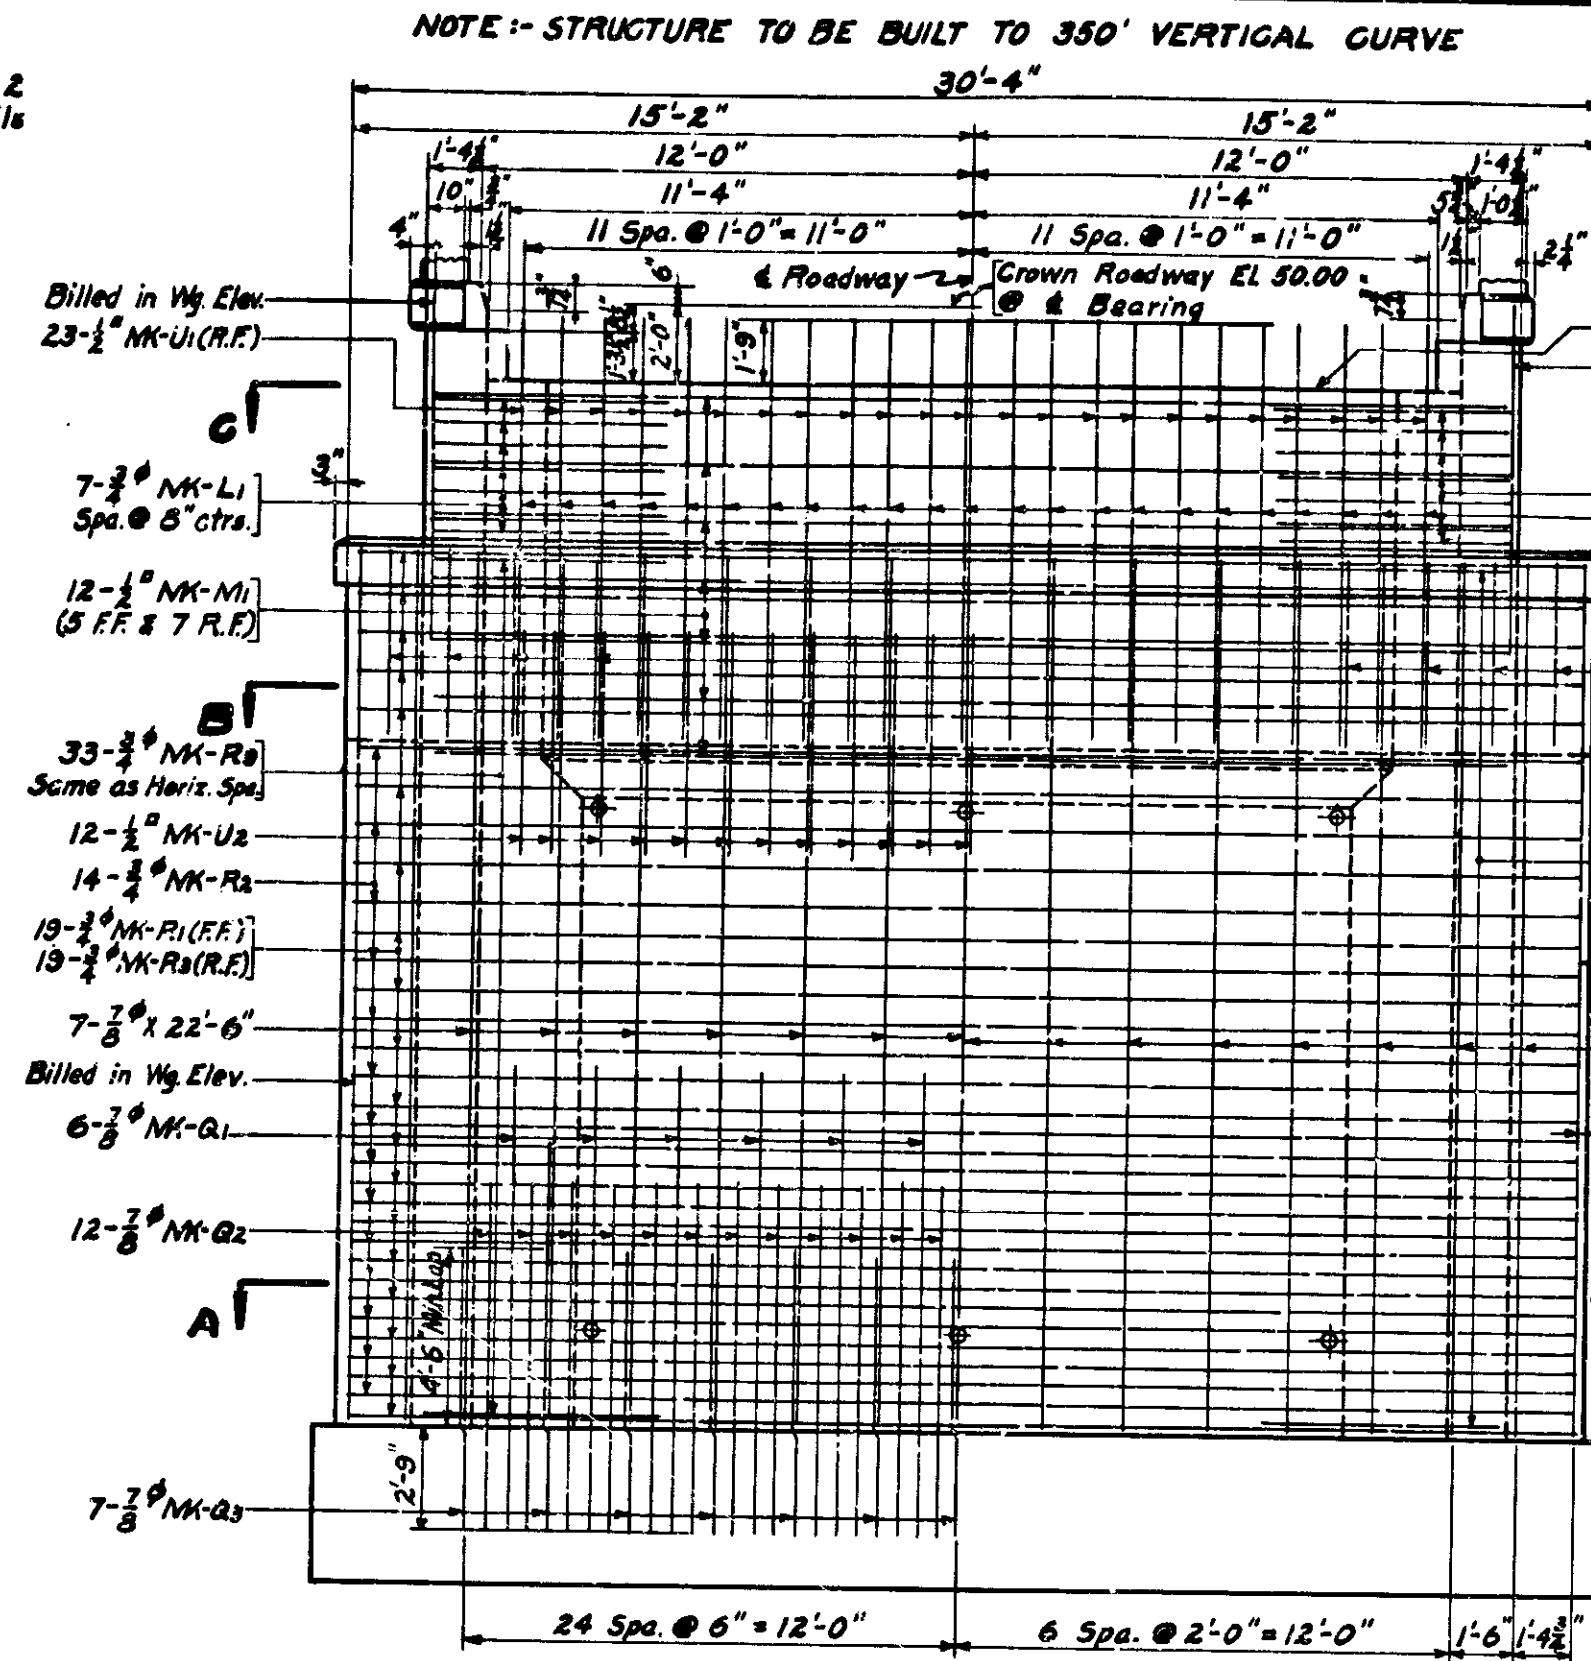 NOTE:- STRUCTURE TO BE BUILT TO 350' VERTICAL CURVE
2
30'-4"
15'-2" 15'-2"
1'-4½" 12'-0" 12'-0" 1'-4½"
10" 11'-4" 11'-4" 1'-0½"
4" 11 Spa. @ 1'-0" = 11'-0" 11 Spa. @ 1'-0" = 11'-0" 1½" 2¼"
6"
℄ Roadway
Crown Roadway EL 50.00
@ ℄ Bearing
2'-0" 1'-9"
Billed in Wg. Elev.
23-½" MK-U1(R.F.)
C
3"
7-¾ϕ MK-L1
Spa. @ 8" ctrs.
12-½□ MK-M1
(5 F.F. & 7 R.F.)
B
33-¾ϕ MK-R9
Same as Horiz. Spa.
12-½□ MK-U2
14-¾ϕ MK-R2
19-¾ϕ MK-R1(F.F.)
19-¾ϕ MK-R3(R.F.)
7-⅞ϕ X 22'-6"
Billed in Wg. Elev.
6-⅞ϕ MK-Q1
12-⅞ϕ MK-Q2
4'-6" Min. Lap
A
2'-9"
7-⅞ϕ MK-Q3
24 Spa. @ 6" = 12'-0" 6 Spa. @ 2'-0" = 12'-0" 1'-6"